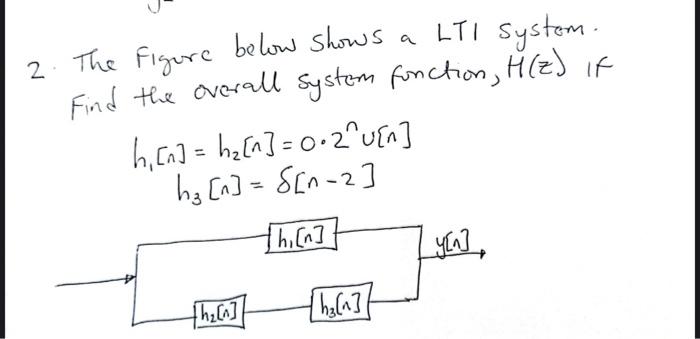 2. The Figure below shows a LTI system.
Find the overall system function, H(z) if
h₁[n] = h₂[n] = 0.2ⁿ u[n]
h₃[n] = δ[n-2]
h₁[n]
y[n]
h₂[n]
h₃[n]